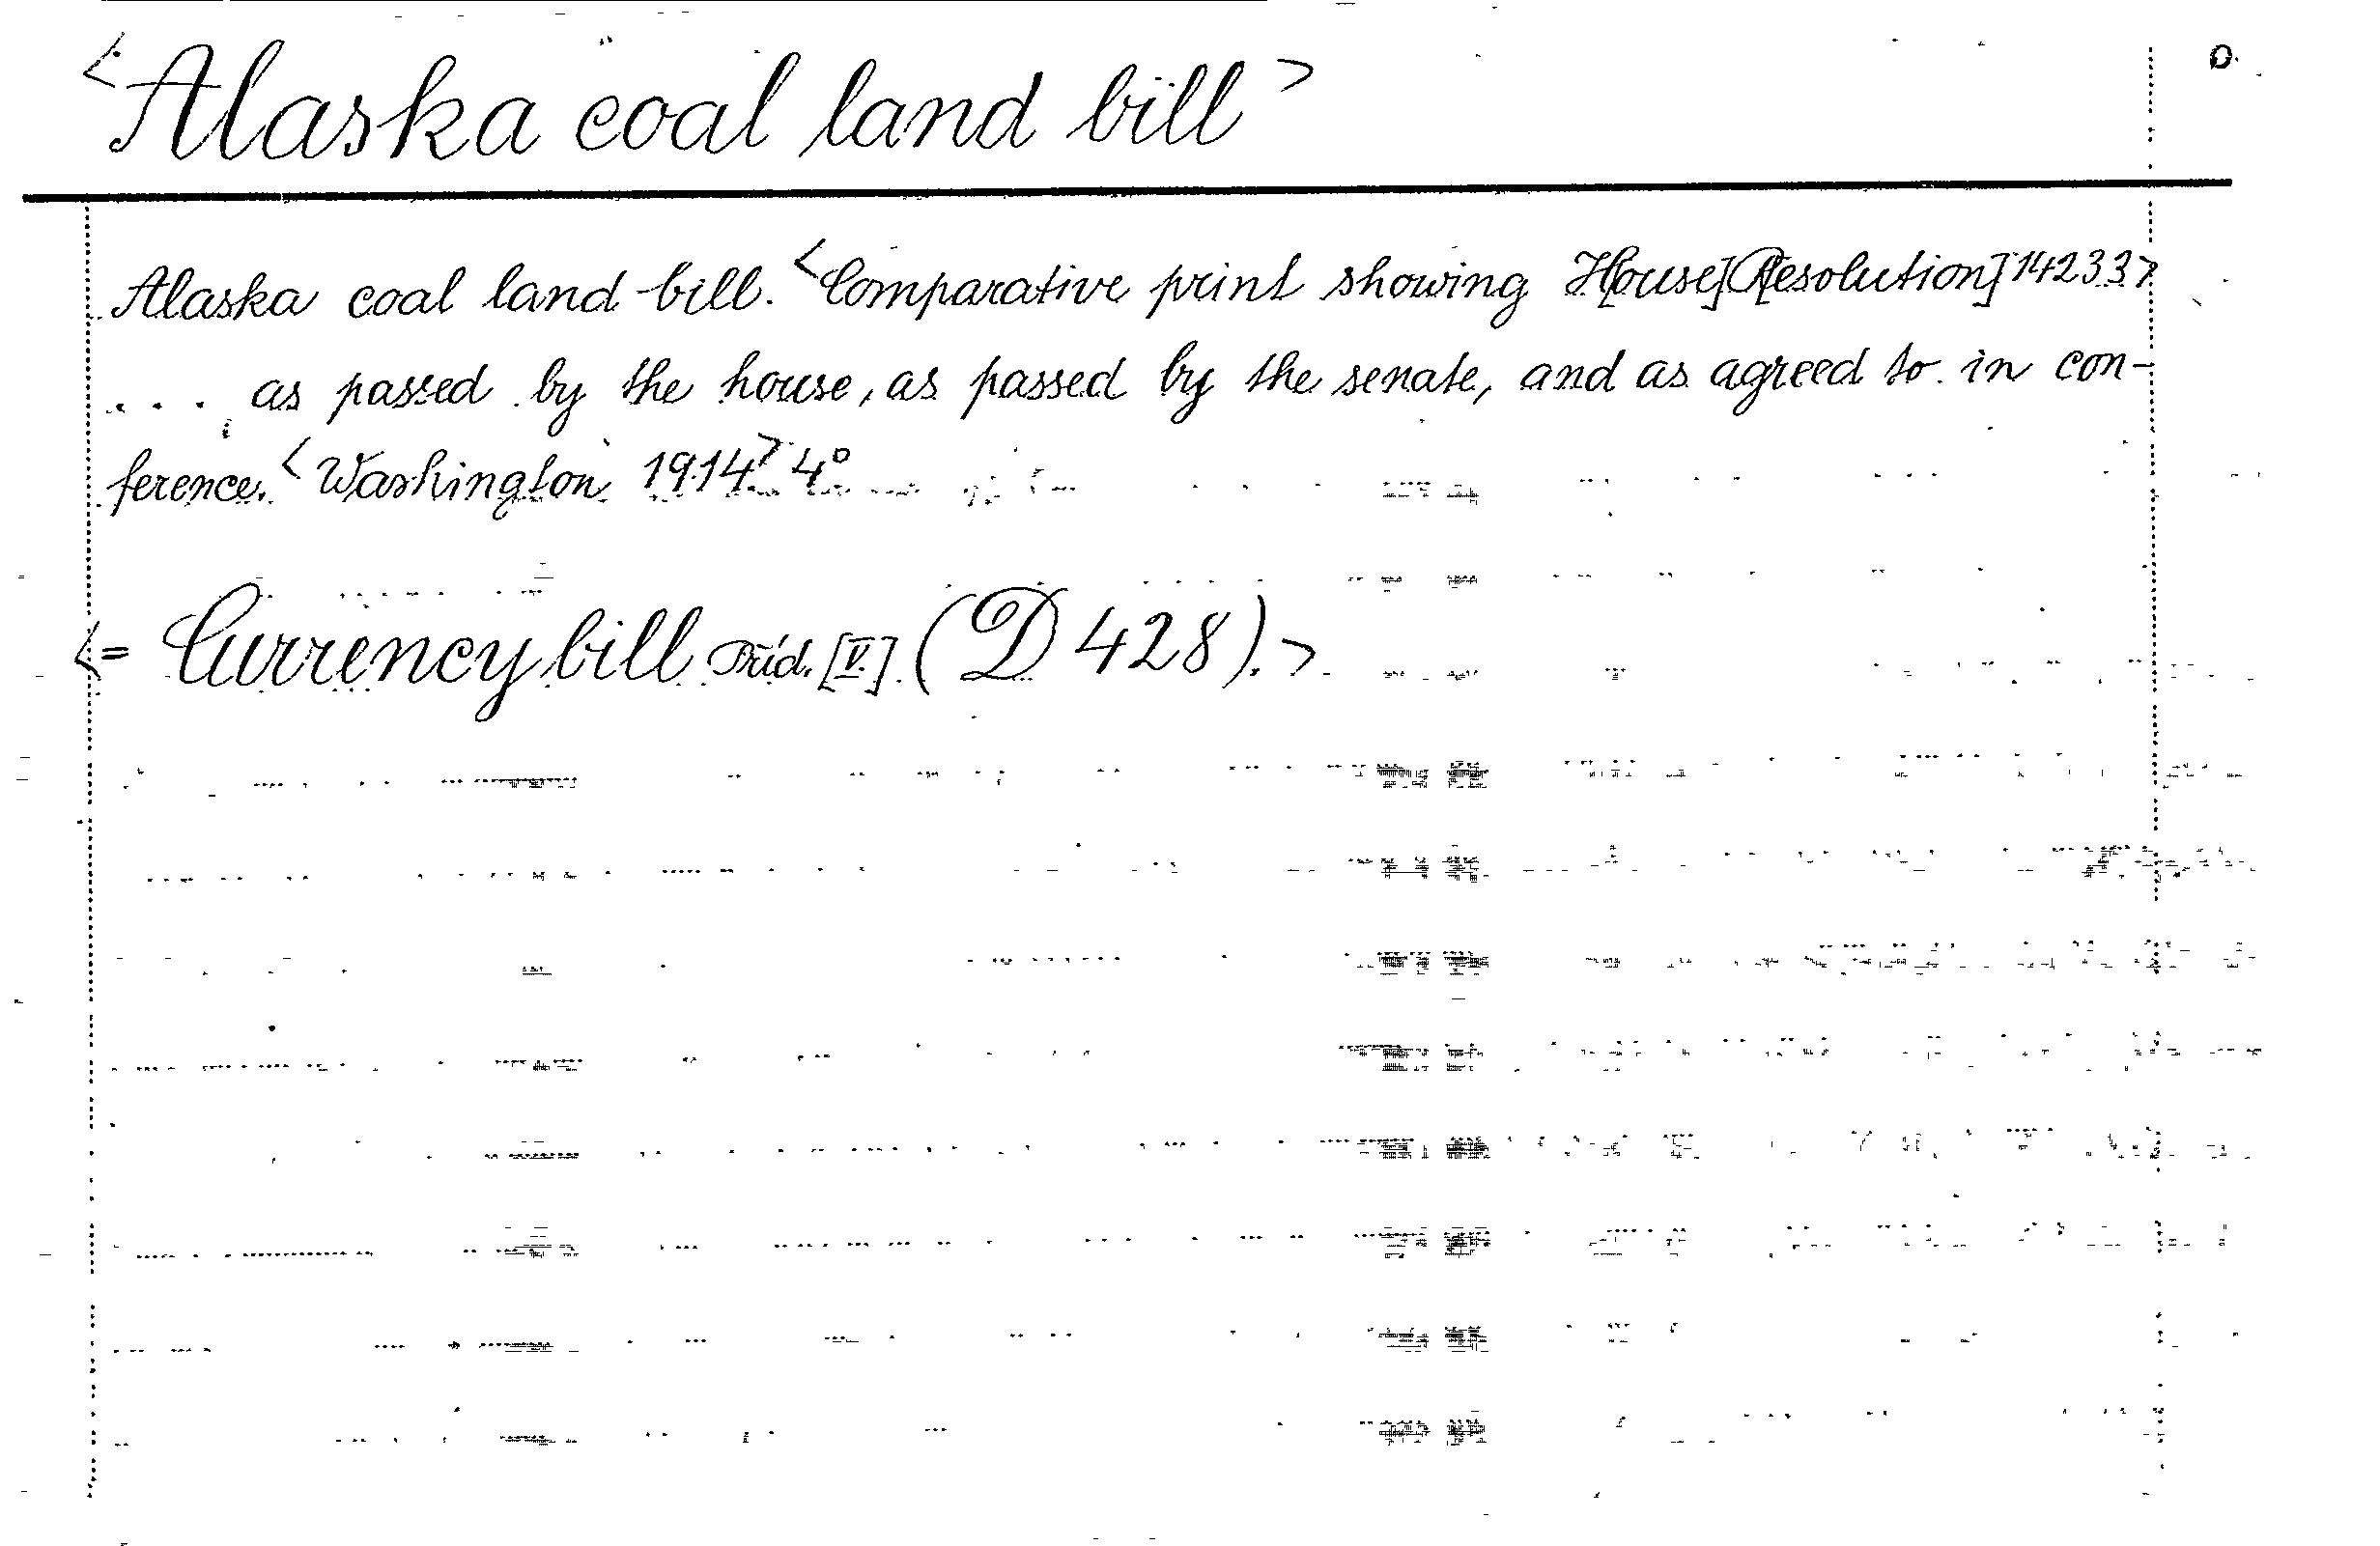 <Alaska coal land bill>
Alaska coal land bill. <Comparative print showing H[ouse] R[esolution] 14233>
... as passed by the house, as passed by the senate, and as agreed to in con-
ference. <Washington 1914> 4°
<= Currency bill [V.] (D 428).>